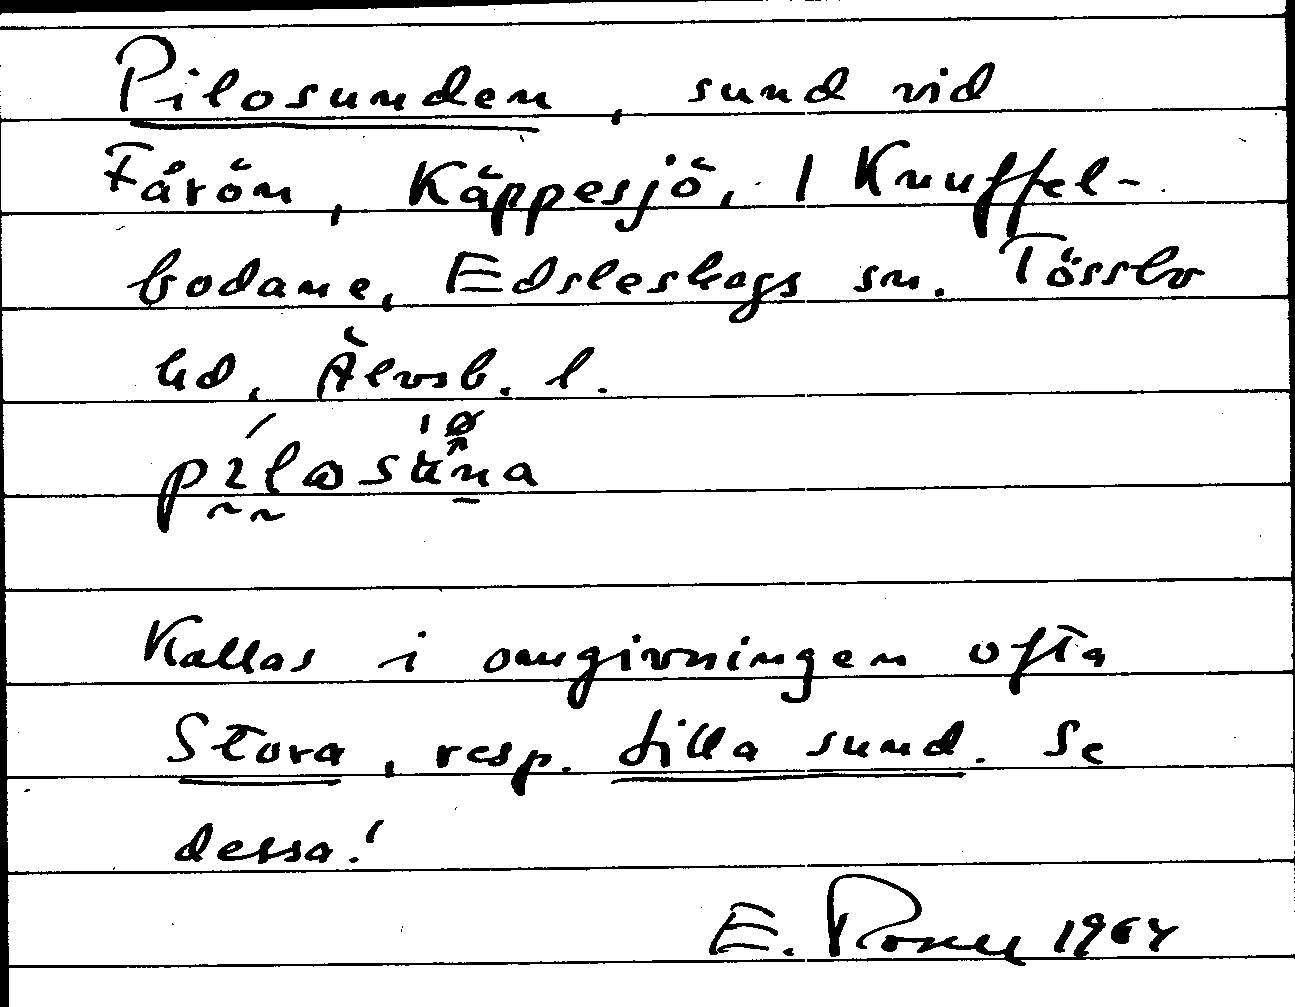 Pilosunden, sund vid
Fårön, Käppesjö, 1 Knuffel-
bodane, Edsleskogs sn. Tössbo
hd, Älvsb. l.
Kallas i omgivningen ofta
Stora, resp. Lilla sund. Se
dessa!
E. 1964